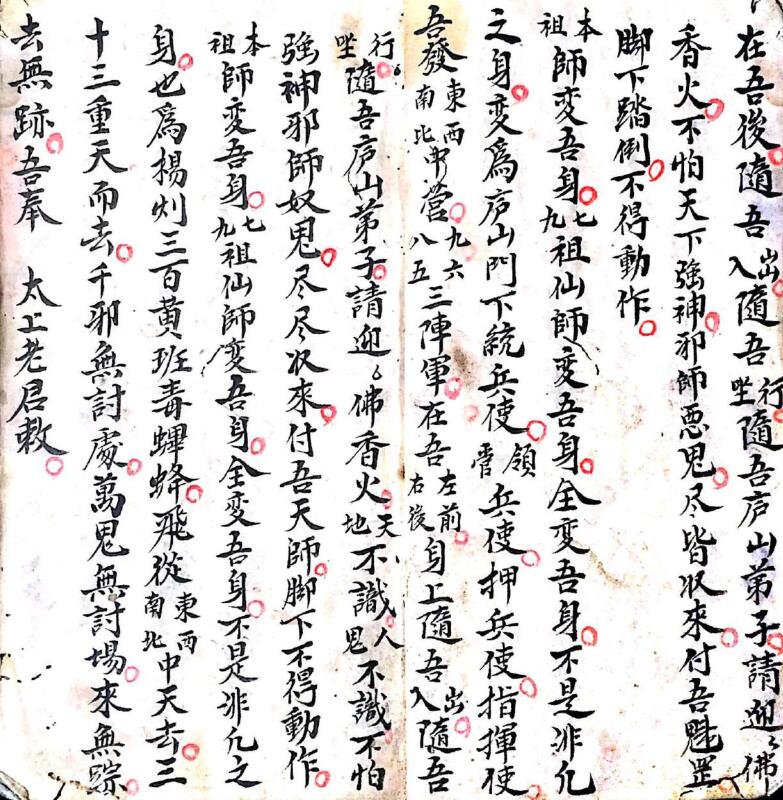 在吾後隨吾出入隨吾行坐隨吾庐山弟子請迎〻佛
香火不怕天下強神邪師惡鬼尽皆收來付吾魁罡
脚下踏倒不得動作
本祖師变吾身七九祖仙師变吾身全变吾身不是非凢
之身变為庐山門下統兵使領管兵使押兵使指揮使
吾發東西南北中营九六八五三陣軍在吾左前右後身上隨吾出入隨吾
行坐隨吾庐山弟子請迎〻佛香火天地不識人鬼不識不怕
強神邪師奴鬼尽尽收來付吾天師脚下不得動作
本祖師变吾身七九祖仙師变吾身全变吾身不是非凢之
身也爲楊灯三百黄班毒蟬蜂飛從東西南北中天去三
十三重天而去千邪無討處萬鬼無討場來無踪
去無跡吾奉 太上老君敕